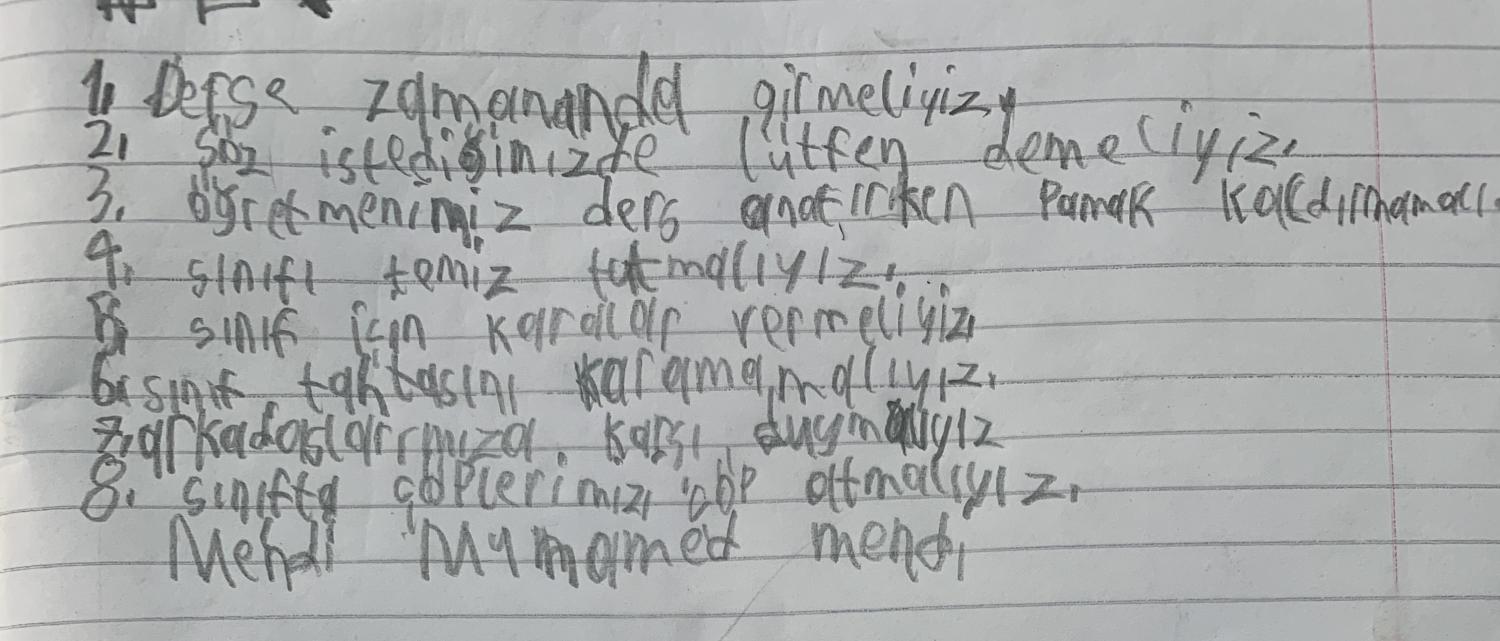 1. Derse zamananda girmeliyiz,
2. söz istediğimizde lütfen demeliyiz.
3. öğretmenimiz ders anatırken Pamak kaldırmamalı
4. sınıfı temiz tutmalıyız.
5. sınıf için kararlar vermeliyiz
6. sınıf tahtasını karamamalıyız.
7. arkadaşlarımıza karşı duymalıyız
8. sınıfta çöplerimizi çöp attmalıyız.
Mehdi Muhamed mehdi